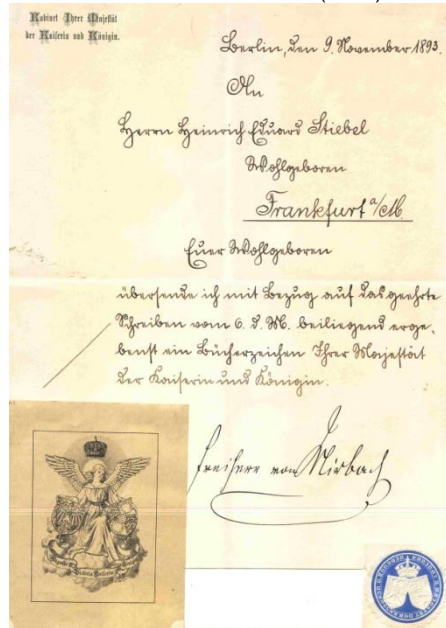 Kabinet Ihrer Majestät
der Kaiserin und Königin.
Berlin, den 9. November 1893.
An
Herrn Heinrich Eduard Stiebel
Wohlgeboren
Frankfurt a/M.
Euer Wohlgeboren
übersende ich mit Bezug auf das geehrte
Schreiben vom 6. d. M. beiliegend erge-
benst ein Bücherzeichen Ihrer Majestät
der Kaiserin und Königin.
Freiherr von Mirbach